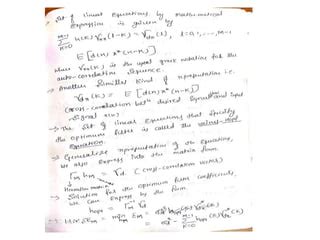 → Set of linear equations by mathematical
expression is given by
M-1
Σ h(k) γxx(l-k) = γdx(l), l = 0, 1, ..., M-1
k=0
E [d(n) x*(n-k)]
where γxx(k) is the
auto-correlation sequence.
→ Another similar kind of representation i.e.
γdx(k) = E [d(n) x*(n-k)]
(cross-correlation betn desired signal and input
signal x(n))
→ This set of linear equations that specify
the optimum filter is called the
equation.
→ Generalize representation of eq equation,
we also express into the matrix form
Γm hm = γd (cross-correlation vector)
Hermitian matrix
→ Solution for the optimum filter coefficients,
we can express by the form
hopt = Γm⁻¹ γd
→ MMSE = min Em = σd² -
hm
= σd² - Σ hopt(k) γdx*(k)